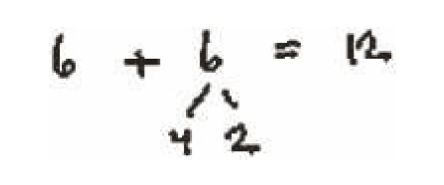 6 + 6 = 12
4 2